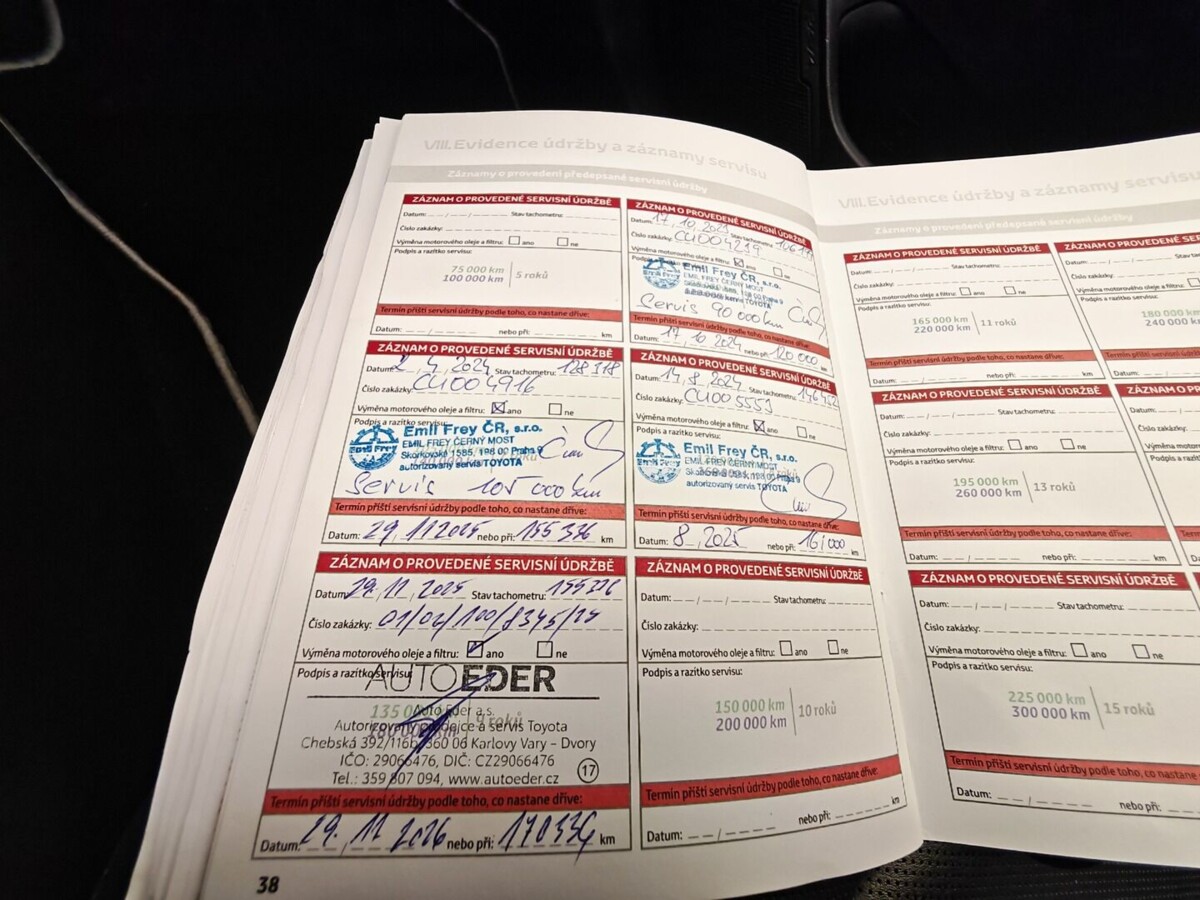 VIII. Evidence údržby a záznamy servisu
Záznamy o provedení předepsané servisní údržby
ZÁZNAM O PROVEDENÉ SERVISNÍ ÚDRŽBĚ
Datum: Stav tachometru:
Číslo zakázky:
Výměna motorového oleje a filtru: ano ne
Podpis a razítko servisu:
75 000 km
100 000 km
5 roků
Termín příští servisní údržby podle toho, co nastane dříve:
Datum: nebo při: km
ZÁZNAM O PROVEDENÉ SERVISNÍ ÚDRŽBĚ
Datum: 17. 10. 2023 Stav tachometru:
Číslo zakázky: CU004219
Výměna motorového oleje a filtru: ano ne
Emil Frey ČR, s.r.o.
EMIL FREY ČERNÝ MOST
autorizovaný servis TOYOTA
Servis 90 000 km
Termín příští servisní údržby podle toho, co nastane dříve:
Datum: 17 10 2024 nebo při: 120 000 km
ZÁZNAM O PROVEDENÉ SERVISNÍ ÚDRŽBĚ
Datum: 2. 4. 2024 Stav tachometru: 128 318
Číslo zakázky: CU004916
Výměna motorového oleje a filtru: ano ne
Podpis a razítko servisu:
Emil Frey ČR, s.r.o.
EMIL FREY ČERNÝ MOST
Skorkovská 1585, 198 00 Praha 9
autorizovaný servis TOYOTA
Emil Frey
Servis 105 000 km
Termín příští servisní údržby podle toho, co nastane dříve:
Datum: 29. 11 2025 nebo při: 155 336 km
ZÁZNAM O PROVEDENÉ SERVISNÍ ÚDRŽBĚ
Datum: 14. 8. 2024 Stav tachometru:
Číslo zakázky: CU005553
Výměna motorového oleje a filtru: ano ne
Podpis a razítko servisu:
Emil Frey ČR, s.r.o.
EMIL FREY ČERNÝ MOST
198 00 Praha 9
autorizovaný servis TOYOTA
Emil Frey
Termín příští servisní údržby podle toho, co nastane dříve:
Datum: 8. 2025 nebo při: km
ZÁZNAM O PROVEDENÉ SERVISNÍ ÚDRŽBĚ
Datum: 29. 11. 2025 Stav tachometru: 155336
Číslo zakázky: 01/06/100/8345/25
Výměna motorového oleje a filtru: ano ne
Podpis a razítko servisu:
AUTO EDER
Auto Eder a.s.
Autorizovaný prodejce a servis Toyota
Chebská 392/116b, 360 06 Karlovy Vary - Dvory
IČO: 29066476, DIČ: CZ29066476
Tel.: 359 807 094, www.autoeder.cz
17
9 roků
Termín příští servisní údržby podle toho, co nastane dříve:
Datum: 29. 11 2026 nebo při: 170336 km
ZÁZNAM O PROVEDENÉ SERVISNÍ ÚDRŽBĚ
Datum: Stav tachometru:
Číslo zakázky:
Výměna motorového oleje a filtru: ano ne
Podpis a razítko servisu:
150 000 km
200 000 km
10 roků
Termín příští servisní údržby podle toho, co nastane dříve:
Datum: nebo při: km
38
VIII. Evidence údržby a záznamy servisu
Záznamy o provedení předepsané servisní údržby
ZÁZNAM O PROVEDENÉ SERVISNÍ ÚDRŽBĚ
Datum: Stav tachometru:
Číslo zakázky:
Výměna motorového oleje a filtru: ano ne
Podpis a razítko servisu:
165 000 km
220 000 km
11 roků
Termín příští servisní údržby podle toho, co nastane dříve:
Datum: nebo při: km
ZÁZNAM O PROVEDENÉ
Datum:
Číslo zakázky:
Výměna motorového oleje
Podpis a razítko servisu:
180 000
240 000
Termín příští servisní údržby
Datum:
ZÁZNAM O PROVEDENÉ SERVISNÍ ÚDRŽBĚ
Datum: Stav tachometru:
Číslo zakázky:
Výměna motorového oleje a filtru: ano ne
Podpis a razítko servisu:
195 000 km
260 000 km
13 roků
Termín příští servisní údržby podle toho, co nastane dříve:
Datum: nebo při: km
ZÁZNAM O PRO
Datum:
Číslo zakázky:
Výměna motorov
Podpis a razítko
Termín příští
Datum:
ZÁZNAM O PROVEDENÉ SERVISNÍ ÚDRŽBĚ
Datum: Stav tachometru:
Číslo zakázky:
Výměna motorového oleje a filtru: ano ne
Podpis a razítko servisu:
225 000 km
300 000 km
15 roků
Termín příští servisní údržby podle toho, co nastane dříve:
Datum: nebo při: